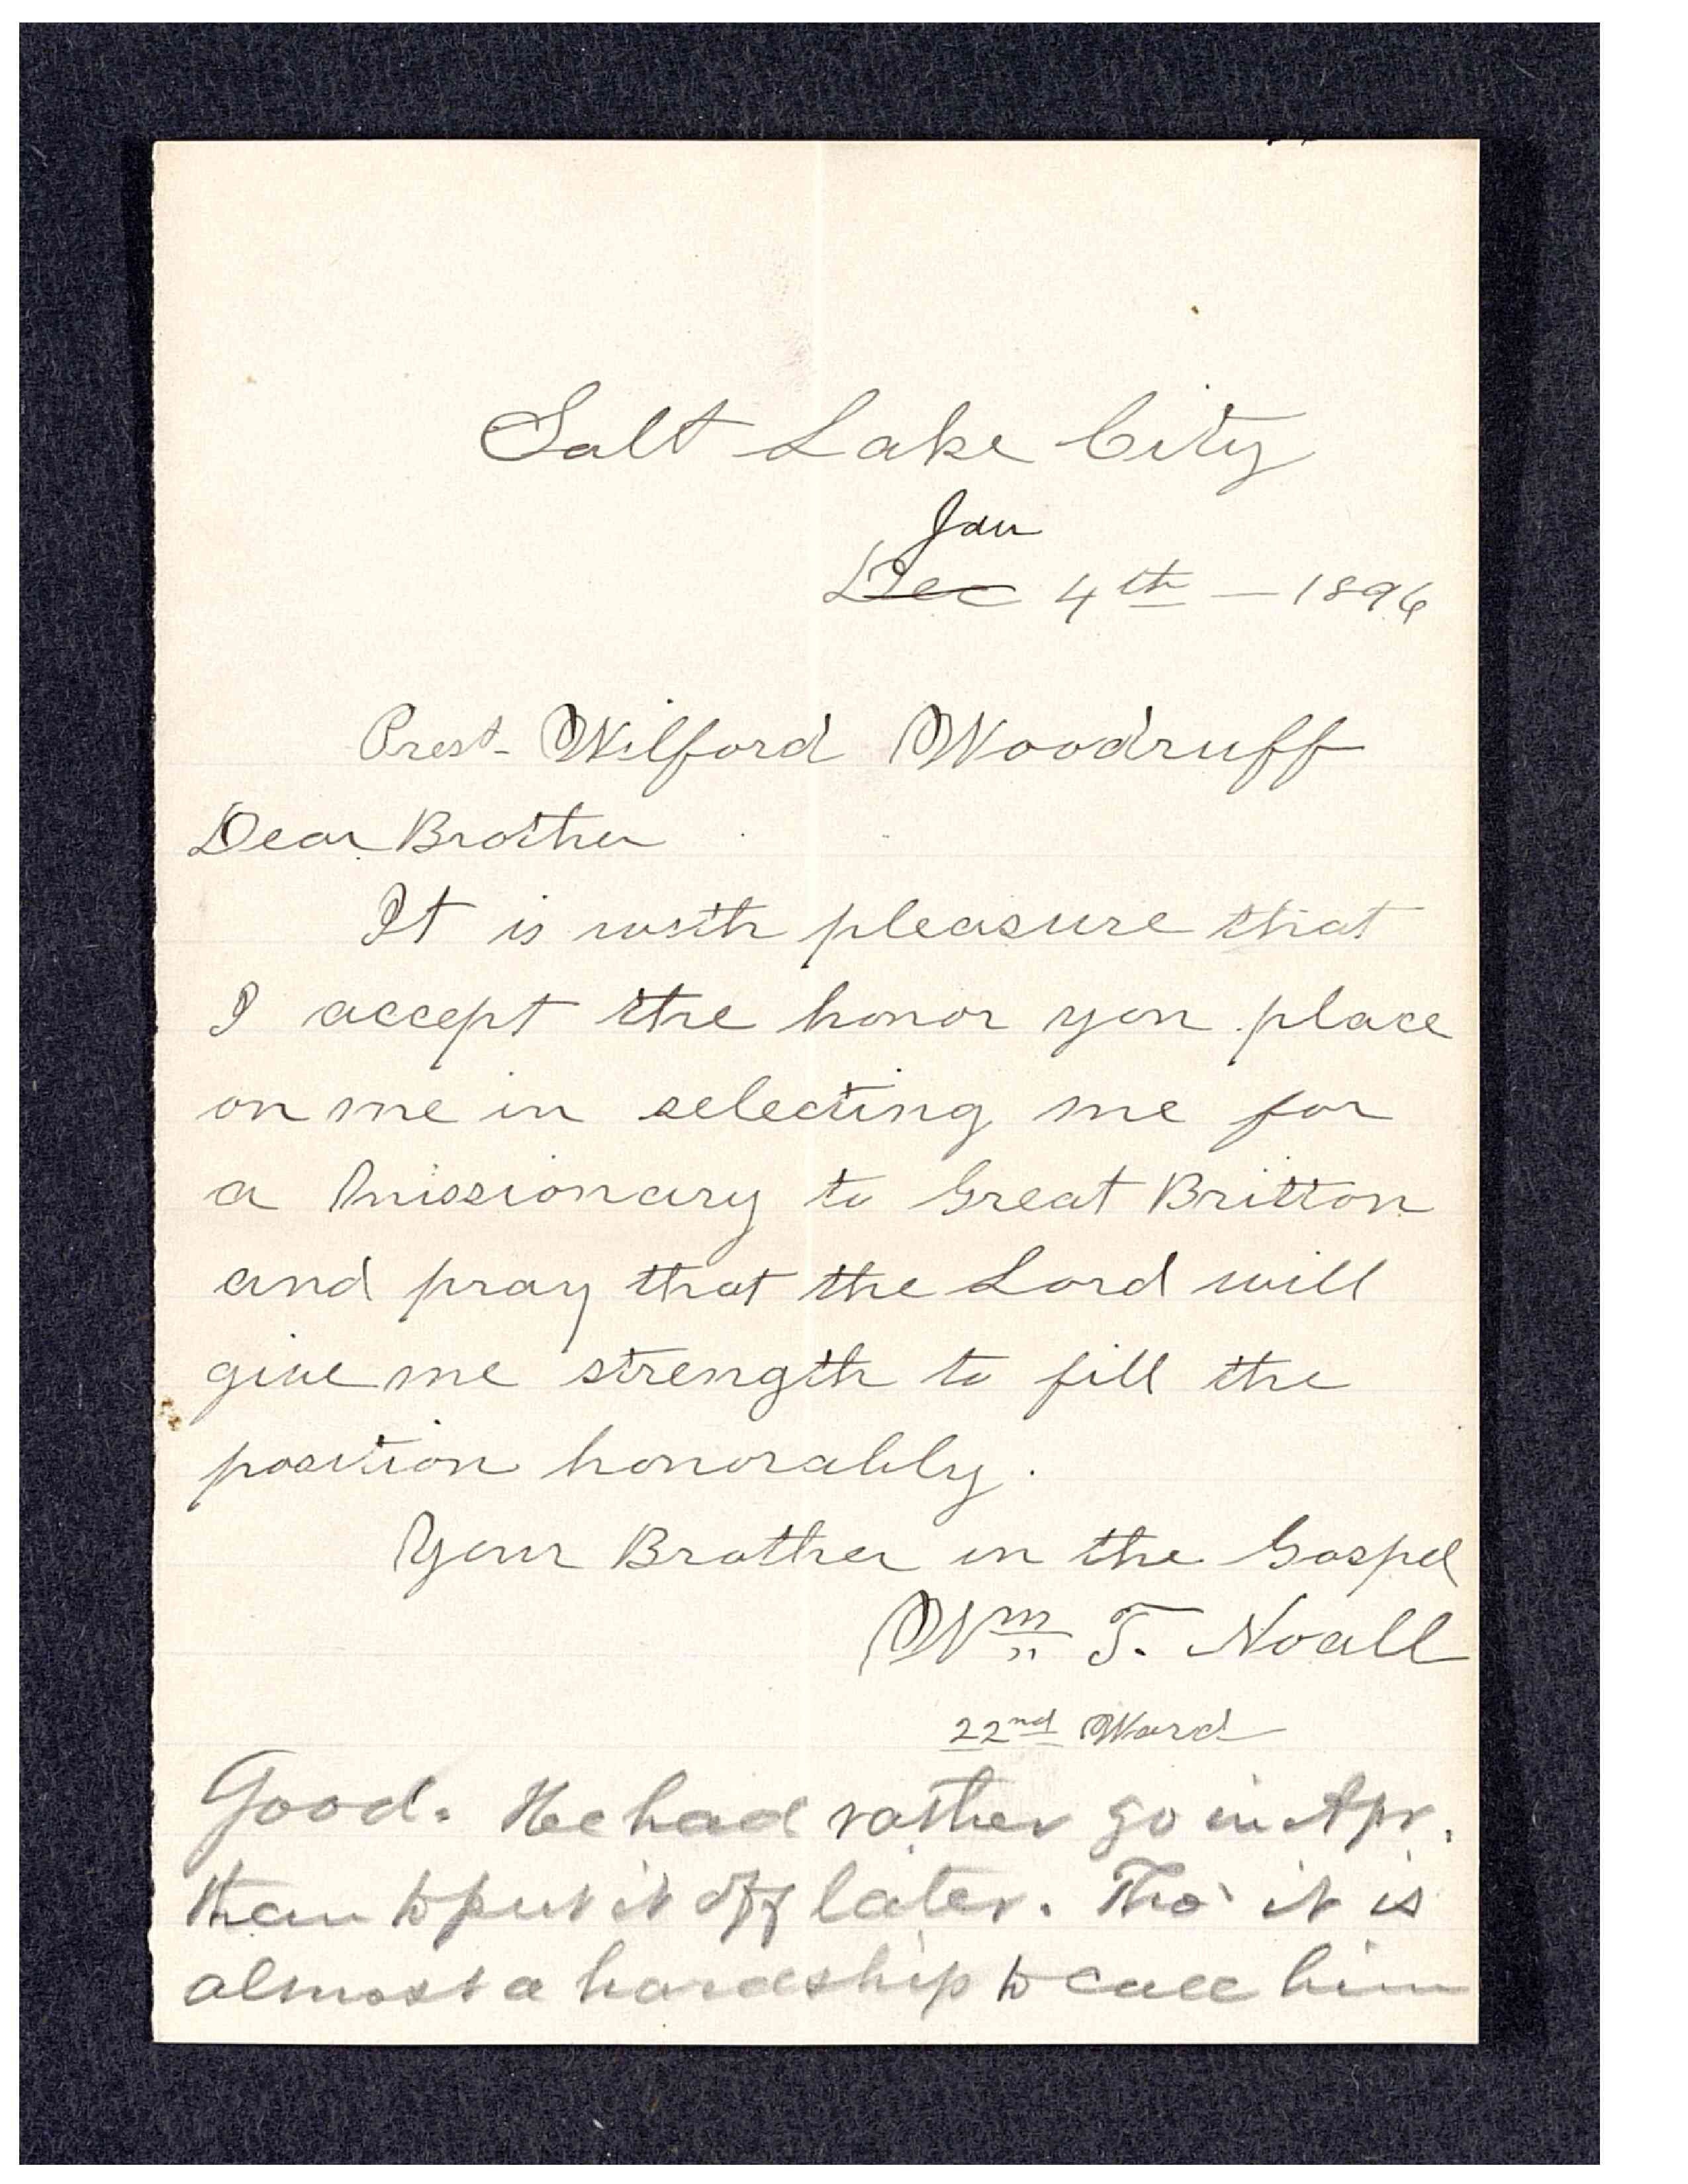 Salt Lake City
Jan
Dec 4th — 1896
Prest- Wilford Woodruff
Dear Brother
It is with pleasure that
I accept the honor you place
on me in selecting me for
a Missionary to Great Britton
and pray that the Lord will
give me strength to fill the
position honorably.
Your Brother in the Gospel
Wm T. Noall
22nd Ward
Good. He had rather go in Apr.
than to put it off later. Tho' it is
almost a hardship to call him